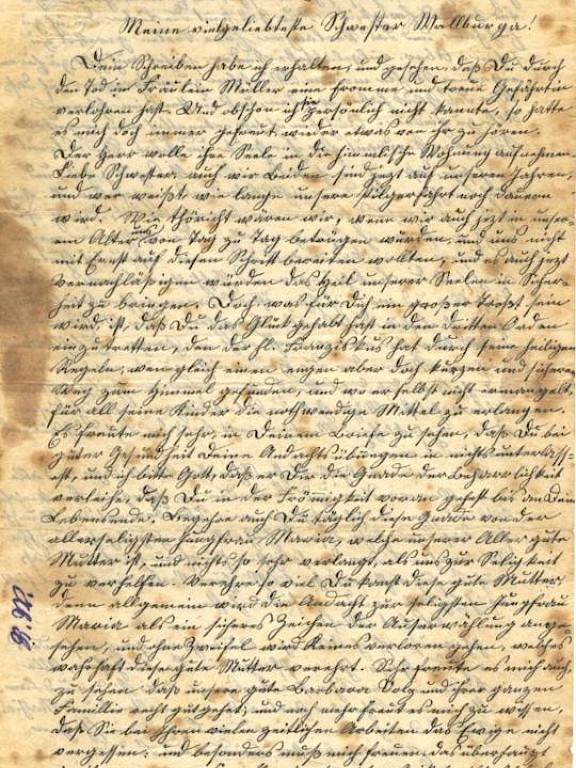 Meine vielgeliebteste Schwester Wallburga!
Dein Schreiben habe ich erhalten, und gesehen, daß Du durch
den Tod in Fräulein Müller eine fromme und treue Gefährtin
verlohren hast. Und obschon ich sie persönlich nicht kannte, so hatte
es mich doch immer gefreut wieder etwas von ihr zu hören.
Der Herr wolle ihre Seele in die himmlische Wohnung aufnehmen.
Liebe Schwester, auch wir Beiden sind jezt auch unseren Jahren,
und wer weißt, wie lange unsere Pilgerfahrt noch dauern
wird. Wie thöricht wären wir, wenn wir auch jezt in unser-
em Alter uns von Tag zu Tag betrügen würden, und uns nicht
mit Ernst auf diesen Schritt bereiten wollten, und es auch jezt
vernachläßigen würden das Heil unserer Seelen in Sicher-
heit zu bringen. Doch was für Dich ein großer Trost sein
wird, ist, daß Du das Glük gehabt hast in den dritten Orden
einzutretten, den der hl. Franziskus hat durch seine heiligen
Regeln, wengleich einen engen aber doch kurzen und sicheren
Weg zum Himmel gefunden, und wo er selbst nicht ermangelt,
für all seine Kinder die nothwendige Mittel zu erlangen.
Es freute mich sehr, in Deinem Briefe zu sehen, daß Du bei
guter Gesundheit Deine Andachtsübungen in nichts unterlass-
est, und ich bitte Gott, daß er Dir die Gnade der Beharrlichkeit
verleihe, daß Du in der Frömigkeit voran gehest bis an Dein
Lebensende. Begehre auch Du täglich diese Gnade von der
allerseligsten Jungfrau Maria, welche unserer Aller gute
Mutter ist, und nichts so sehr verlangt, als uns zur Selichkeit
zu verhelfen. Verehre so viel Du kanst diese gute Mutter
denn allgemein wird die Andacht zur seligsten Jungfrau
Maria als ein sicheres Zeichen der Auserwählung ange-
sehen, und ohne Zweifel wird Keines verloren gehen, welches
wahrhaft diese gute Mutter verehrt. Sehr freute es mich auch,
zu sehen daß unsere gute Barbara Volz und ihrer ganzen
Familie recht gut gehet; und noch mehr freut es mich zu wissen,
daß Sie bei Ihren vielen zeitlichen Arbeiten das Ewige nicht
vergessen; und besonders muß mich freuen das überhaupt